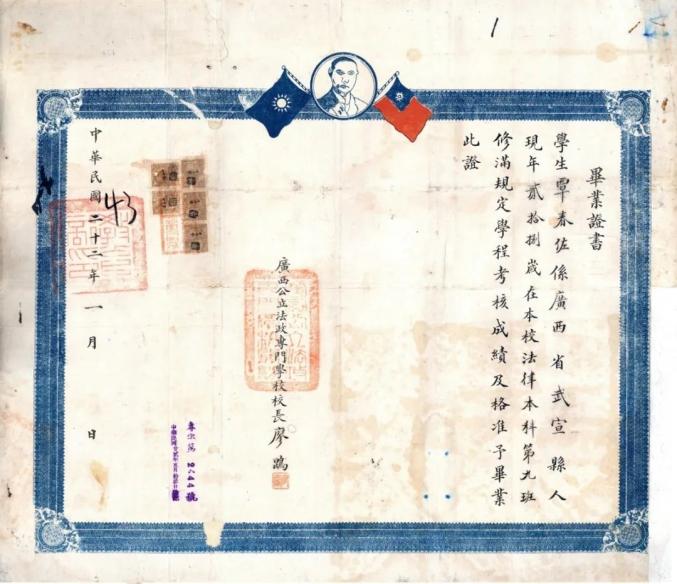 畢業證書
學生覃春佐係廣西省武宣縣人
現年貳拾捌歲在本校法律本科第九班
修滿規定學程考核成績及格准予畢業
此證
廣西公立法政專門學校校長廖
中華民國二十二年一月 日
43
1